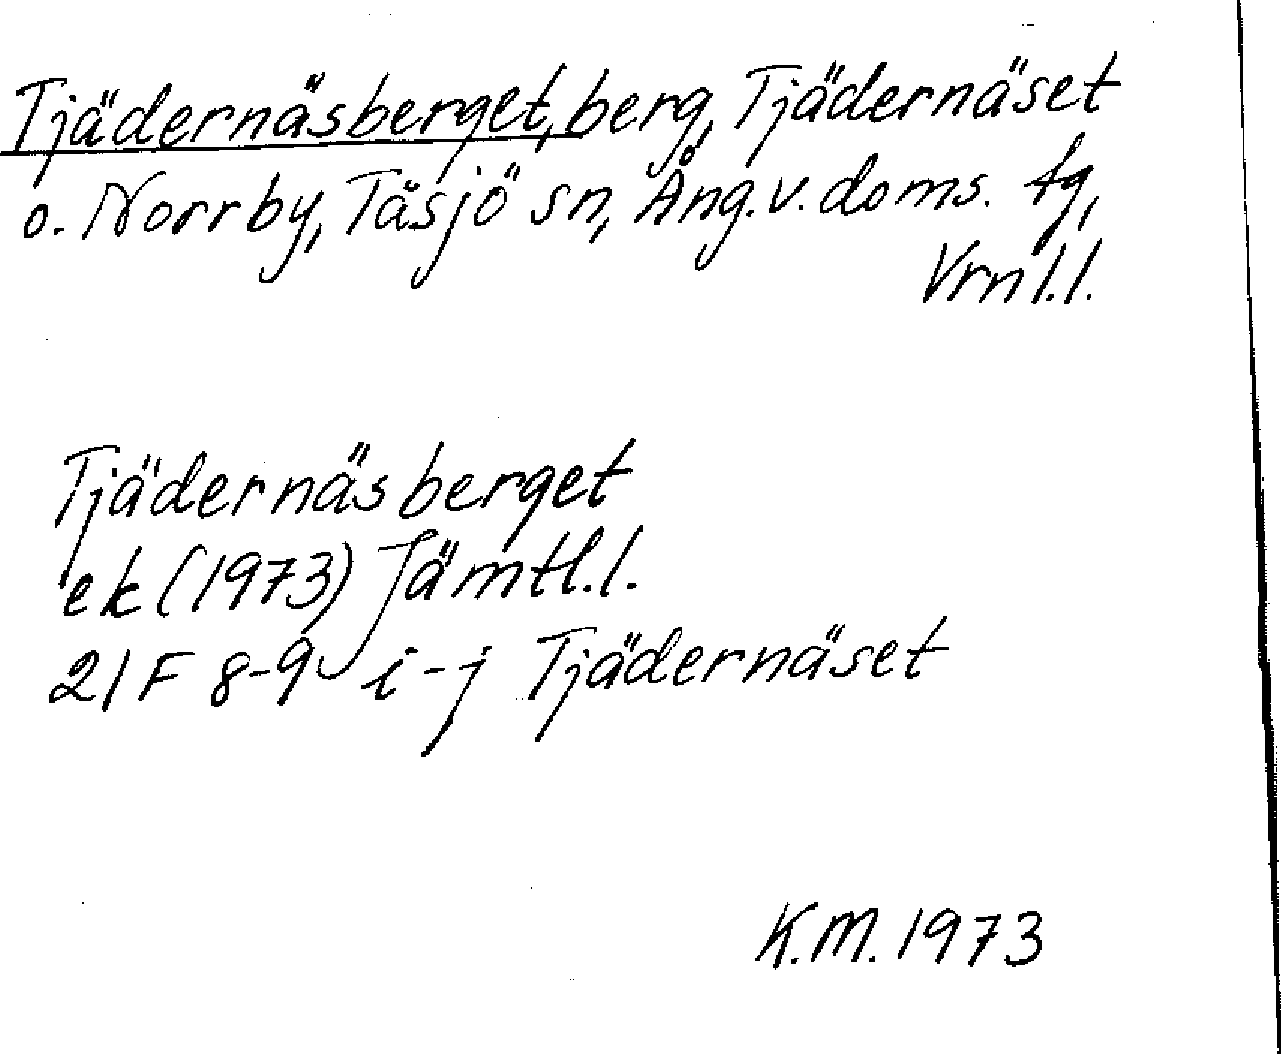 Tjädernäsberget, berg, Tjädernäset
o. Norrby, Tåsjö sn, Ång. v. doms. tg,
Vrnl.l.
Tjädernäsberget
ek (1973) Jämtl.l.
21F 8-9 i-j Tjädernäset
K.M. 1973